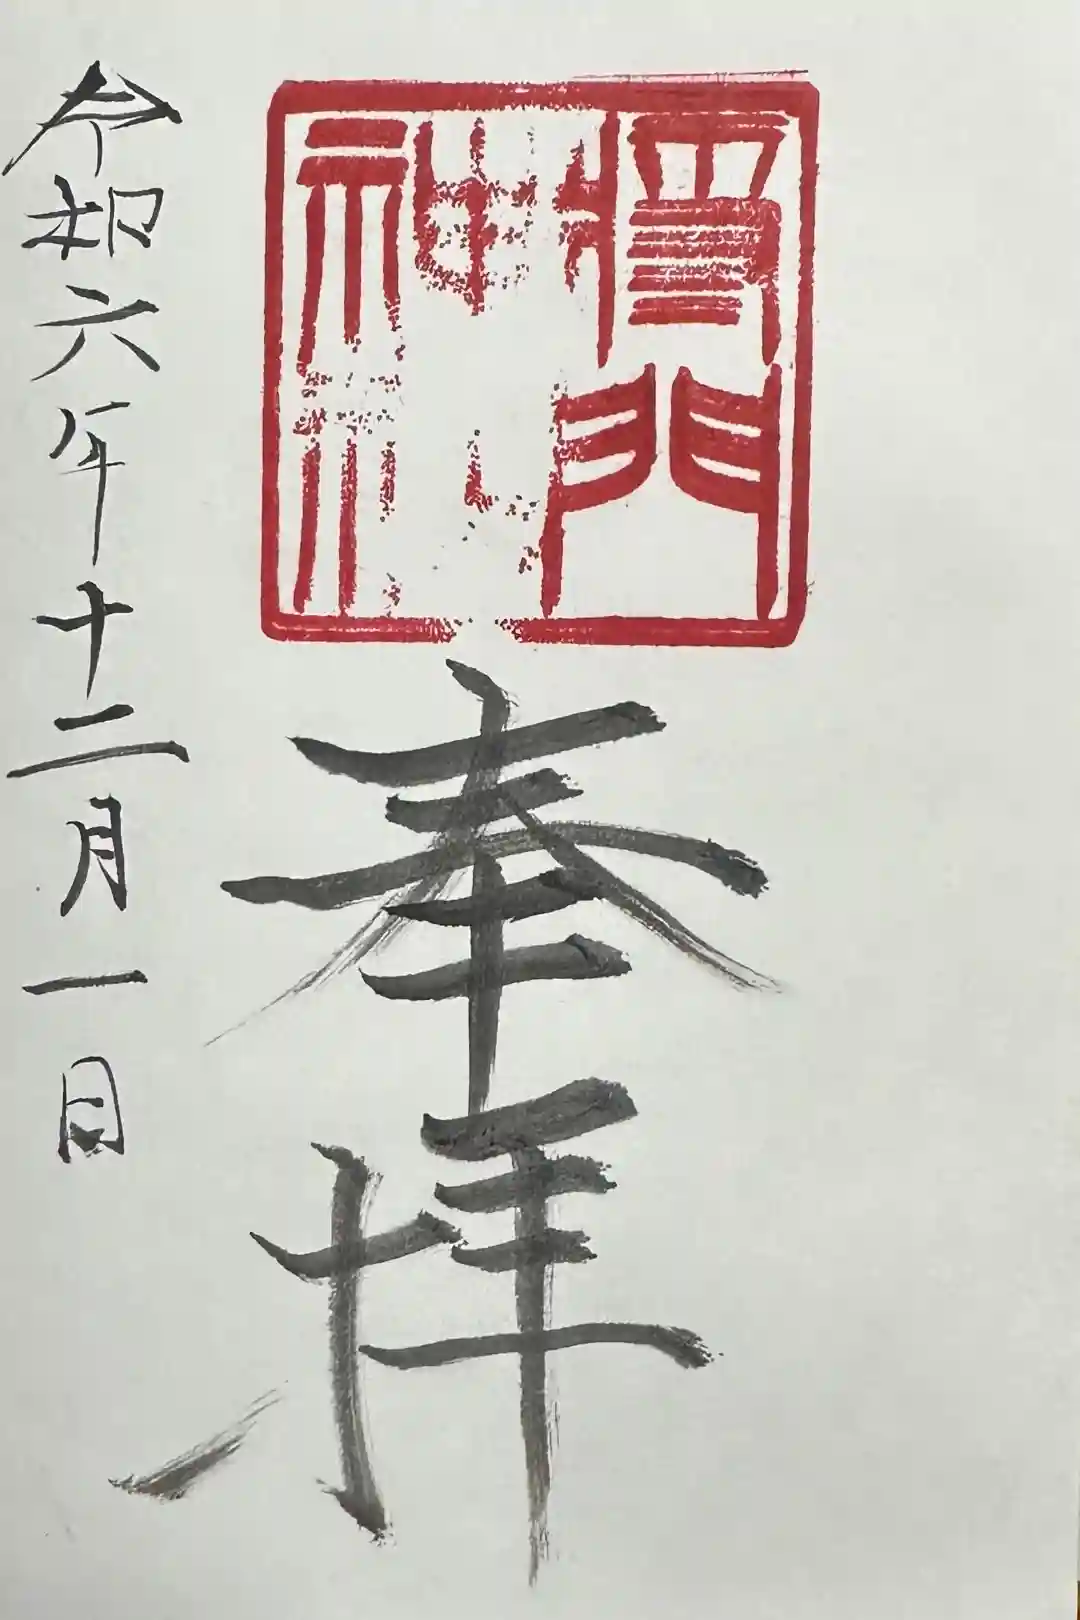 将門
神社
奉拝
令和六年十二月一日